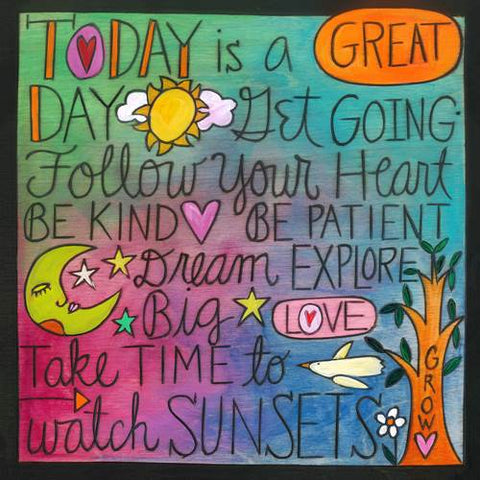 TODAY is a GREAT
DAY Get GOING
Follow Your Heart
BE KIND BE PATIENT
Dream EXPLORE
Big LOVE
Take TIME to
watch SUNSETS
GROW